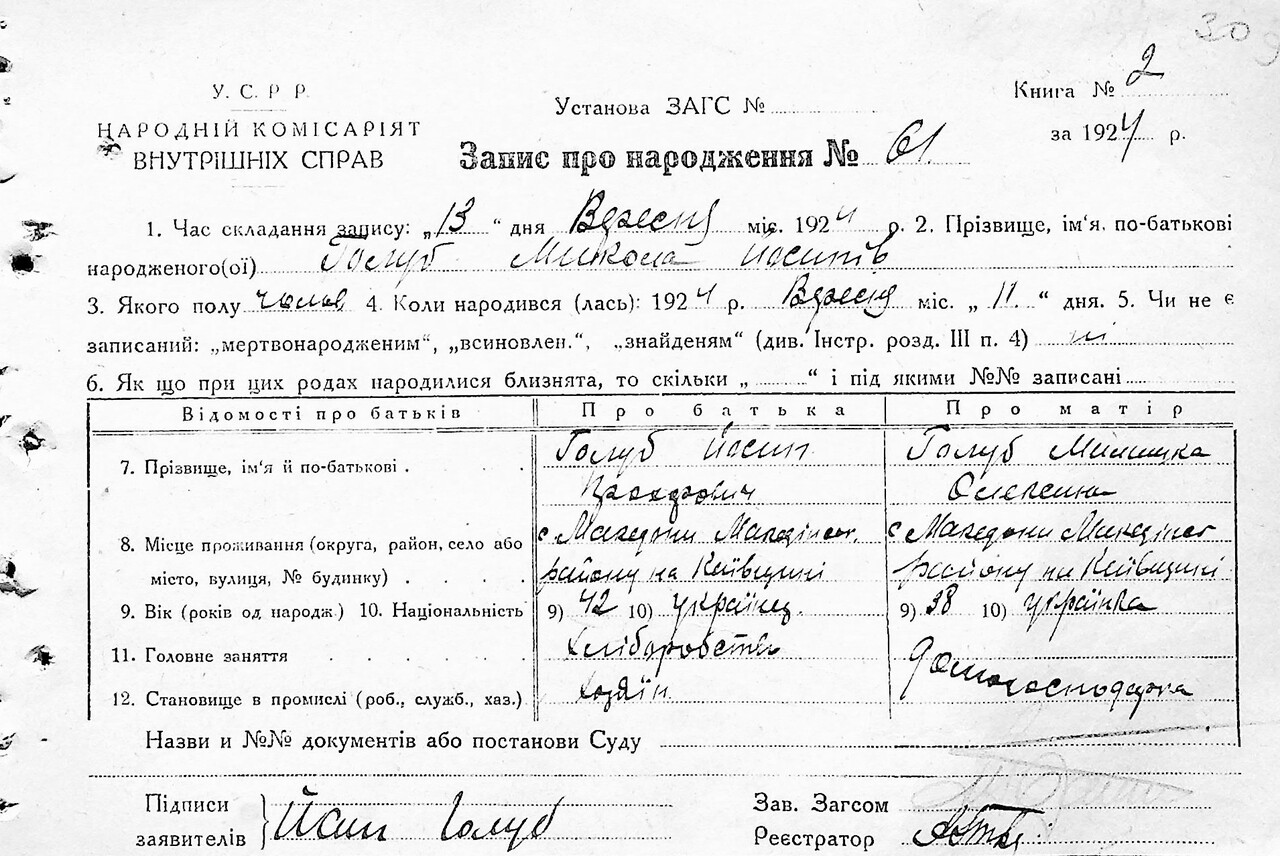 30
У. С. Р. Р.
НАРОДНІЙ КОМІСАРІЯТ
ВНУТРІШНІХ СПРАВ
Установа ЗАГС №
Книга № 2
за 1924 р.
Запис про народження № 61.
1. Час складання запису: „13“ дня Вересня міс. 1924 р. 2. Прізвище, ім'я, по-батькові
народженого(ої) Голуб Микола Йосипів
3. Якого полу чолов 4. Коли народився (лась): 1924 р. Вересня міс. „11.“ дня. 5. Чи не є
записаний: „мертвонародженим“, „всиновлен.“, „знайденям“ (див. Інстр. розд. III п. 4) ні
6. Як що при цих родах народилися близнята, то скільки „ “ і під якими №№ записані
Відомості про батьків Про батька Про матір
7. Прізвище, ім'я й по-батькові . Голуб Йосип Голуб
8. Місце проживання (округа, район, село або с Македони с Македони
місто, вулиця, № будинку) району на Київщині району на Київщині
9. Вік (років од народж.) 10. Національність 9) 42 10) українец. 9) 38 10) українка
11. Головне заняття Хліборобство
12. Становище в промислі (роб., служб., хаз.) Хозяїн Домогосподарка
Назви и №№ документів або постанови Суду
Підписи
заявителів Йосип Голуб
Зав. Загсом
Реєстратор